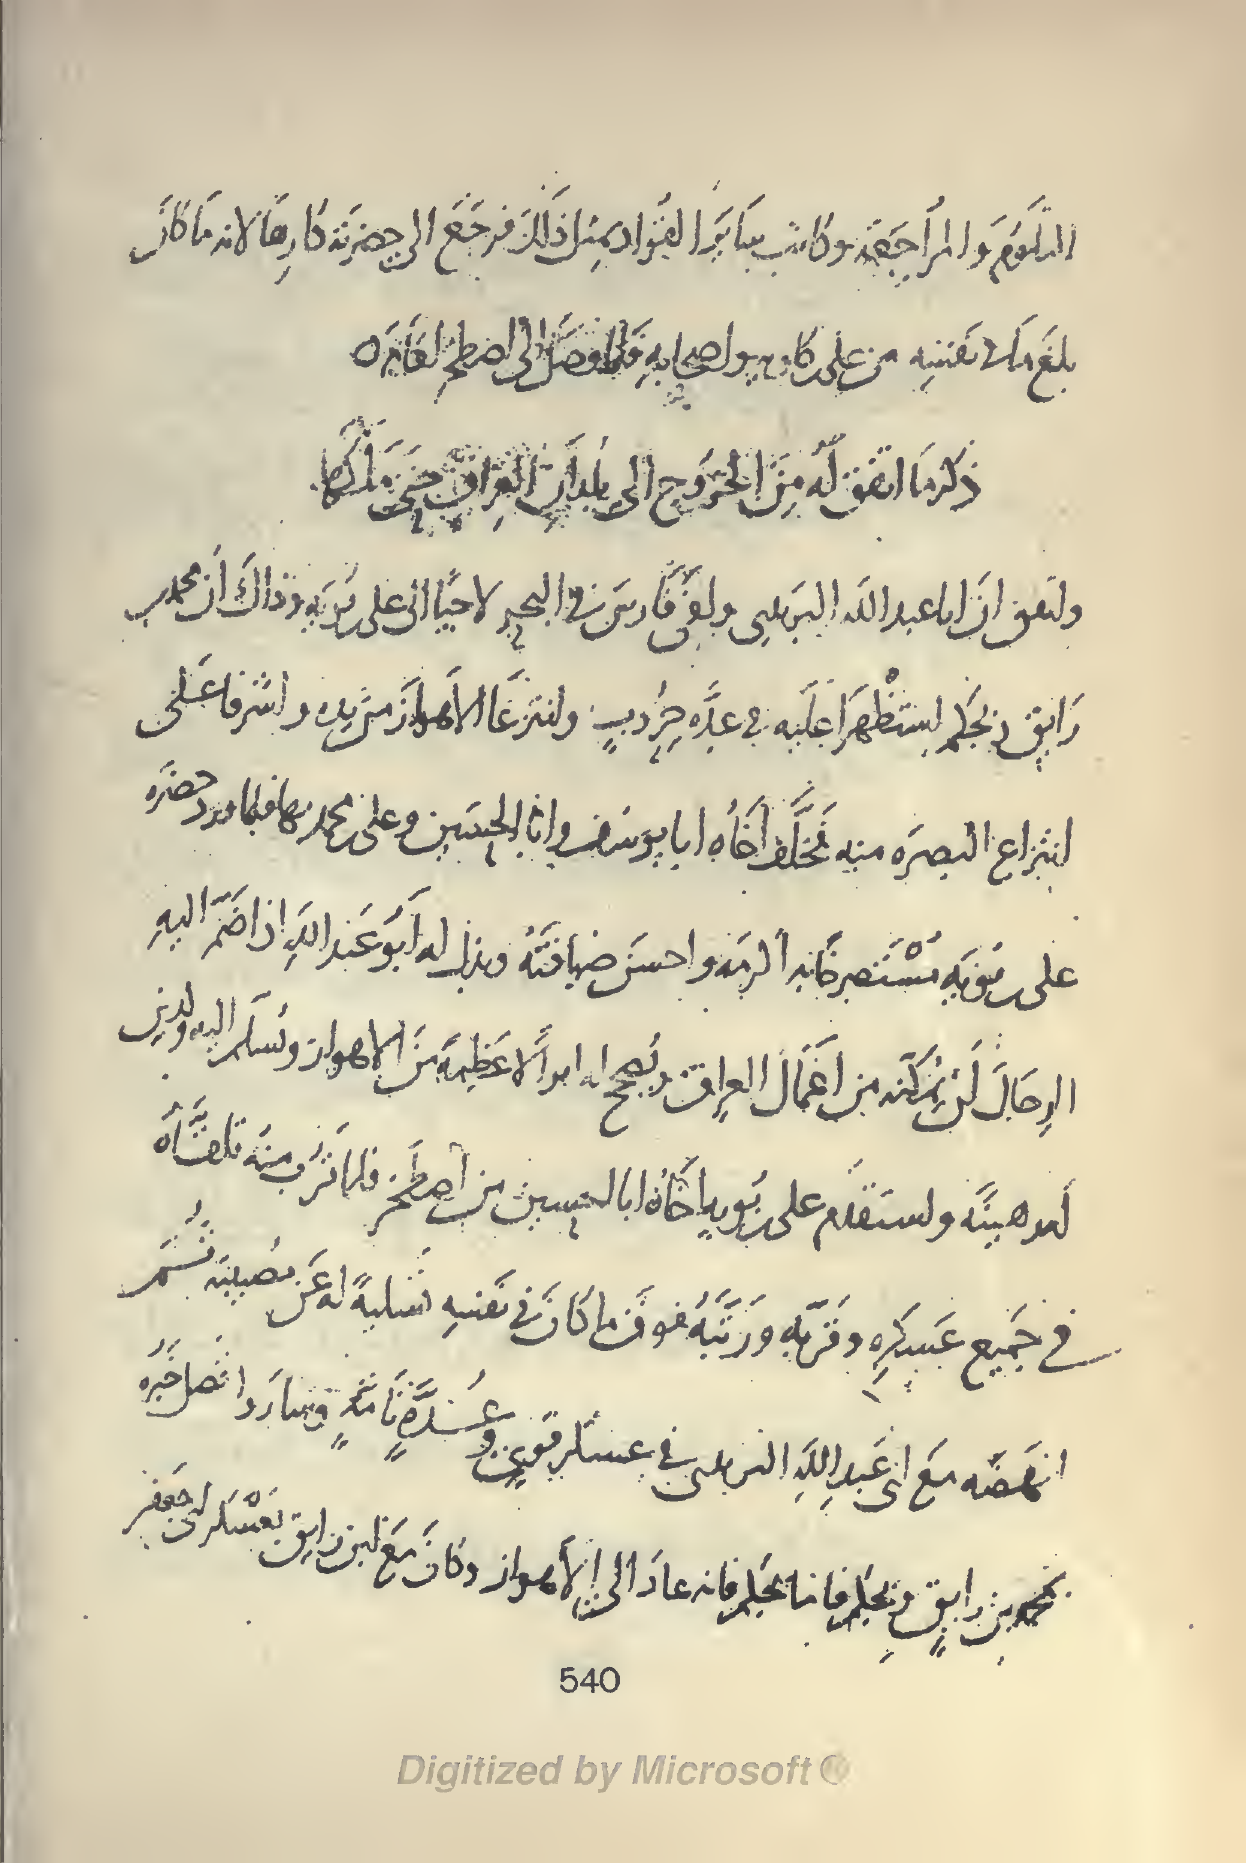 التلوم والمراجعة وكاتب سائر القواد بمثل ذلك فرجع الى حضرته كارها لانه ما كان
بلغ ملء نفسه من على كاويه واصحابه فلما وصل الى اصطخر اقام به
ذكر ما اتفق له من الخروج الى بلدان العراق حتى ملكها
واتفق ان ابا عبد الله البريدى وافى فارس فى البحر لاجيا الى على بن بويه وذاك ان محمد بن
رايق وبجكم استظهرا عليه فى عده حروب وانتزعا الاهواز من يده واشرفا على
انتزاع البصره منه فخلف اخاه ابا يوسف وابا الحسين وعلى بن محمد بها فلما ورد حضره
على بن بويه مستنصرخا به اكرمه واحسن ضيافته وبذل له ابو عبد الله اذا ضم اليه
الرجال ان يمكنه من اعمال العراق ويصحح له اموالا عظيمه من الاهواز وسلم اليه ولدين
له رهينه واستقدم على بن بويه اخاه ابا الحسين من اصطخر فلما قرب منه تلقاه
فى جميع عسكره وقربه ورتبه فوق ما كان فى نفسه تسلية له عن مصيبته ثم
انهضه مع ابى عبد الله البريدى فى عسكر قوى وعدة تامة وسار واتصل خبره
بمحمد بن رايق وبجكم فاما بجكم فانه عاد الى الاهواز وكان مع ابن رايق بعسكر ابى جعفر
540
Digitized by Microsoft ®